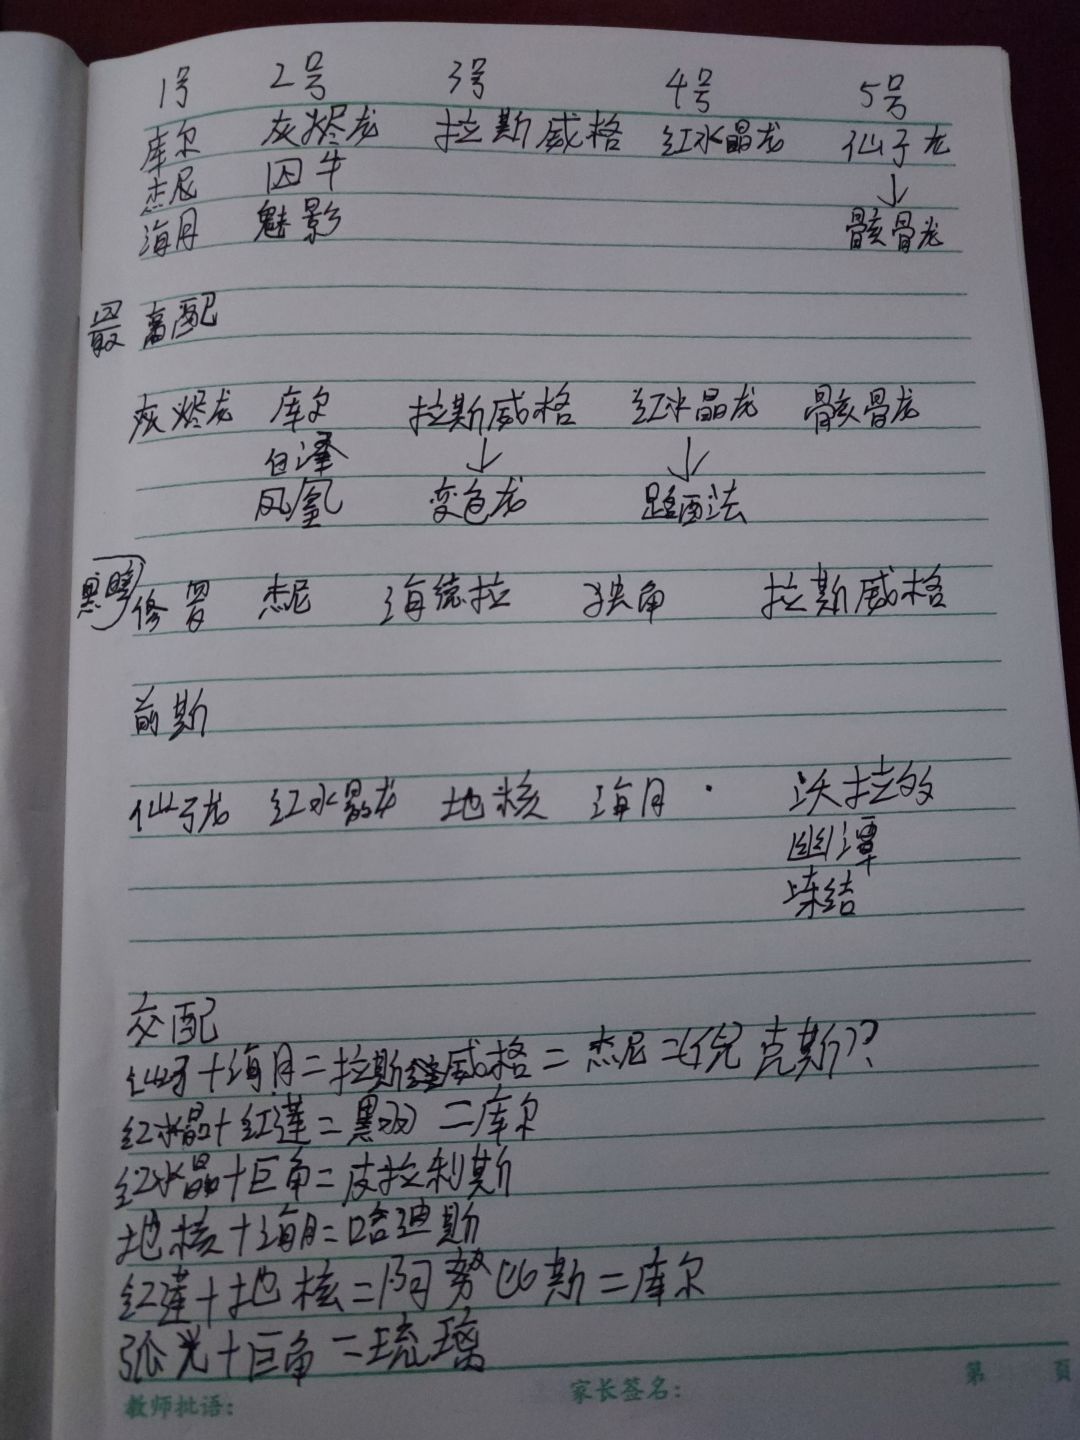 1号 2号 3号 4号 5号
库尔 灰烬龙 拉斯威格 红水晶龙 仙子龙
杰尼 囚牛 ↓
海月 魅影 骸骨龙
最高配
灰烬龙 库尔 拉斯威格 红水晶龙 骸骨龙
白泽 ↓ ↓
凤凰 变色龙 路西法
修罗 杰尼 海德拉 独角 拉斯威格
前期
仙子龙 红水晶龙 地核 海月 · 沃拉的
幽谭
冻结
交配
仙子+海月=拉斯威格=杰尼=(倪克斯)?
红水晶+红莲=黑双=库尔
红水晶+巨角=皮拉利斯
地核+海月=哈迪斯
红莲+地核=阿努比斯=库尔
弧光+巨角=琉璃
教师批语: 家长签名: 第 页